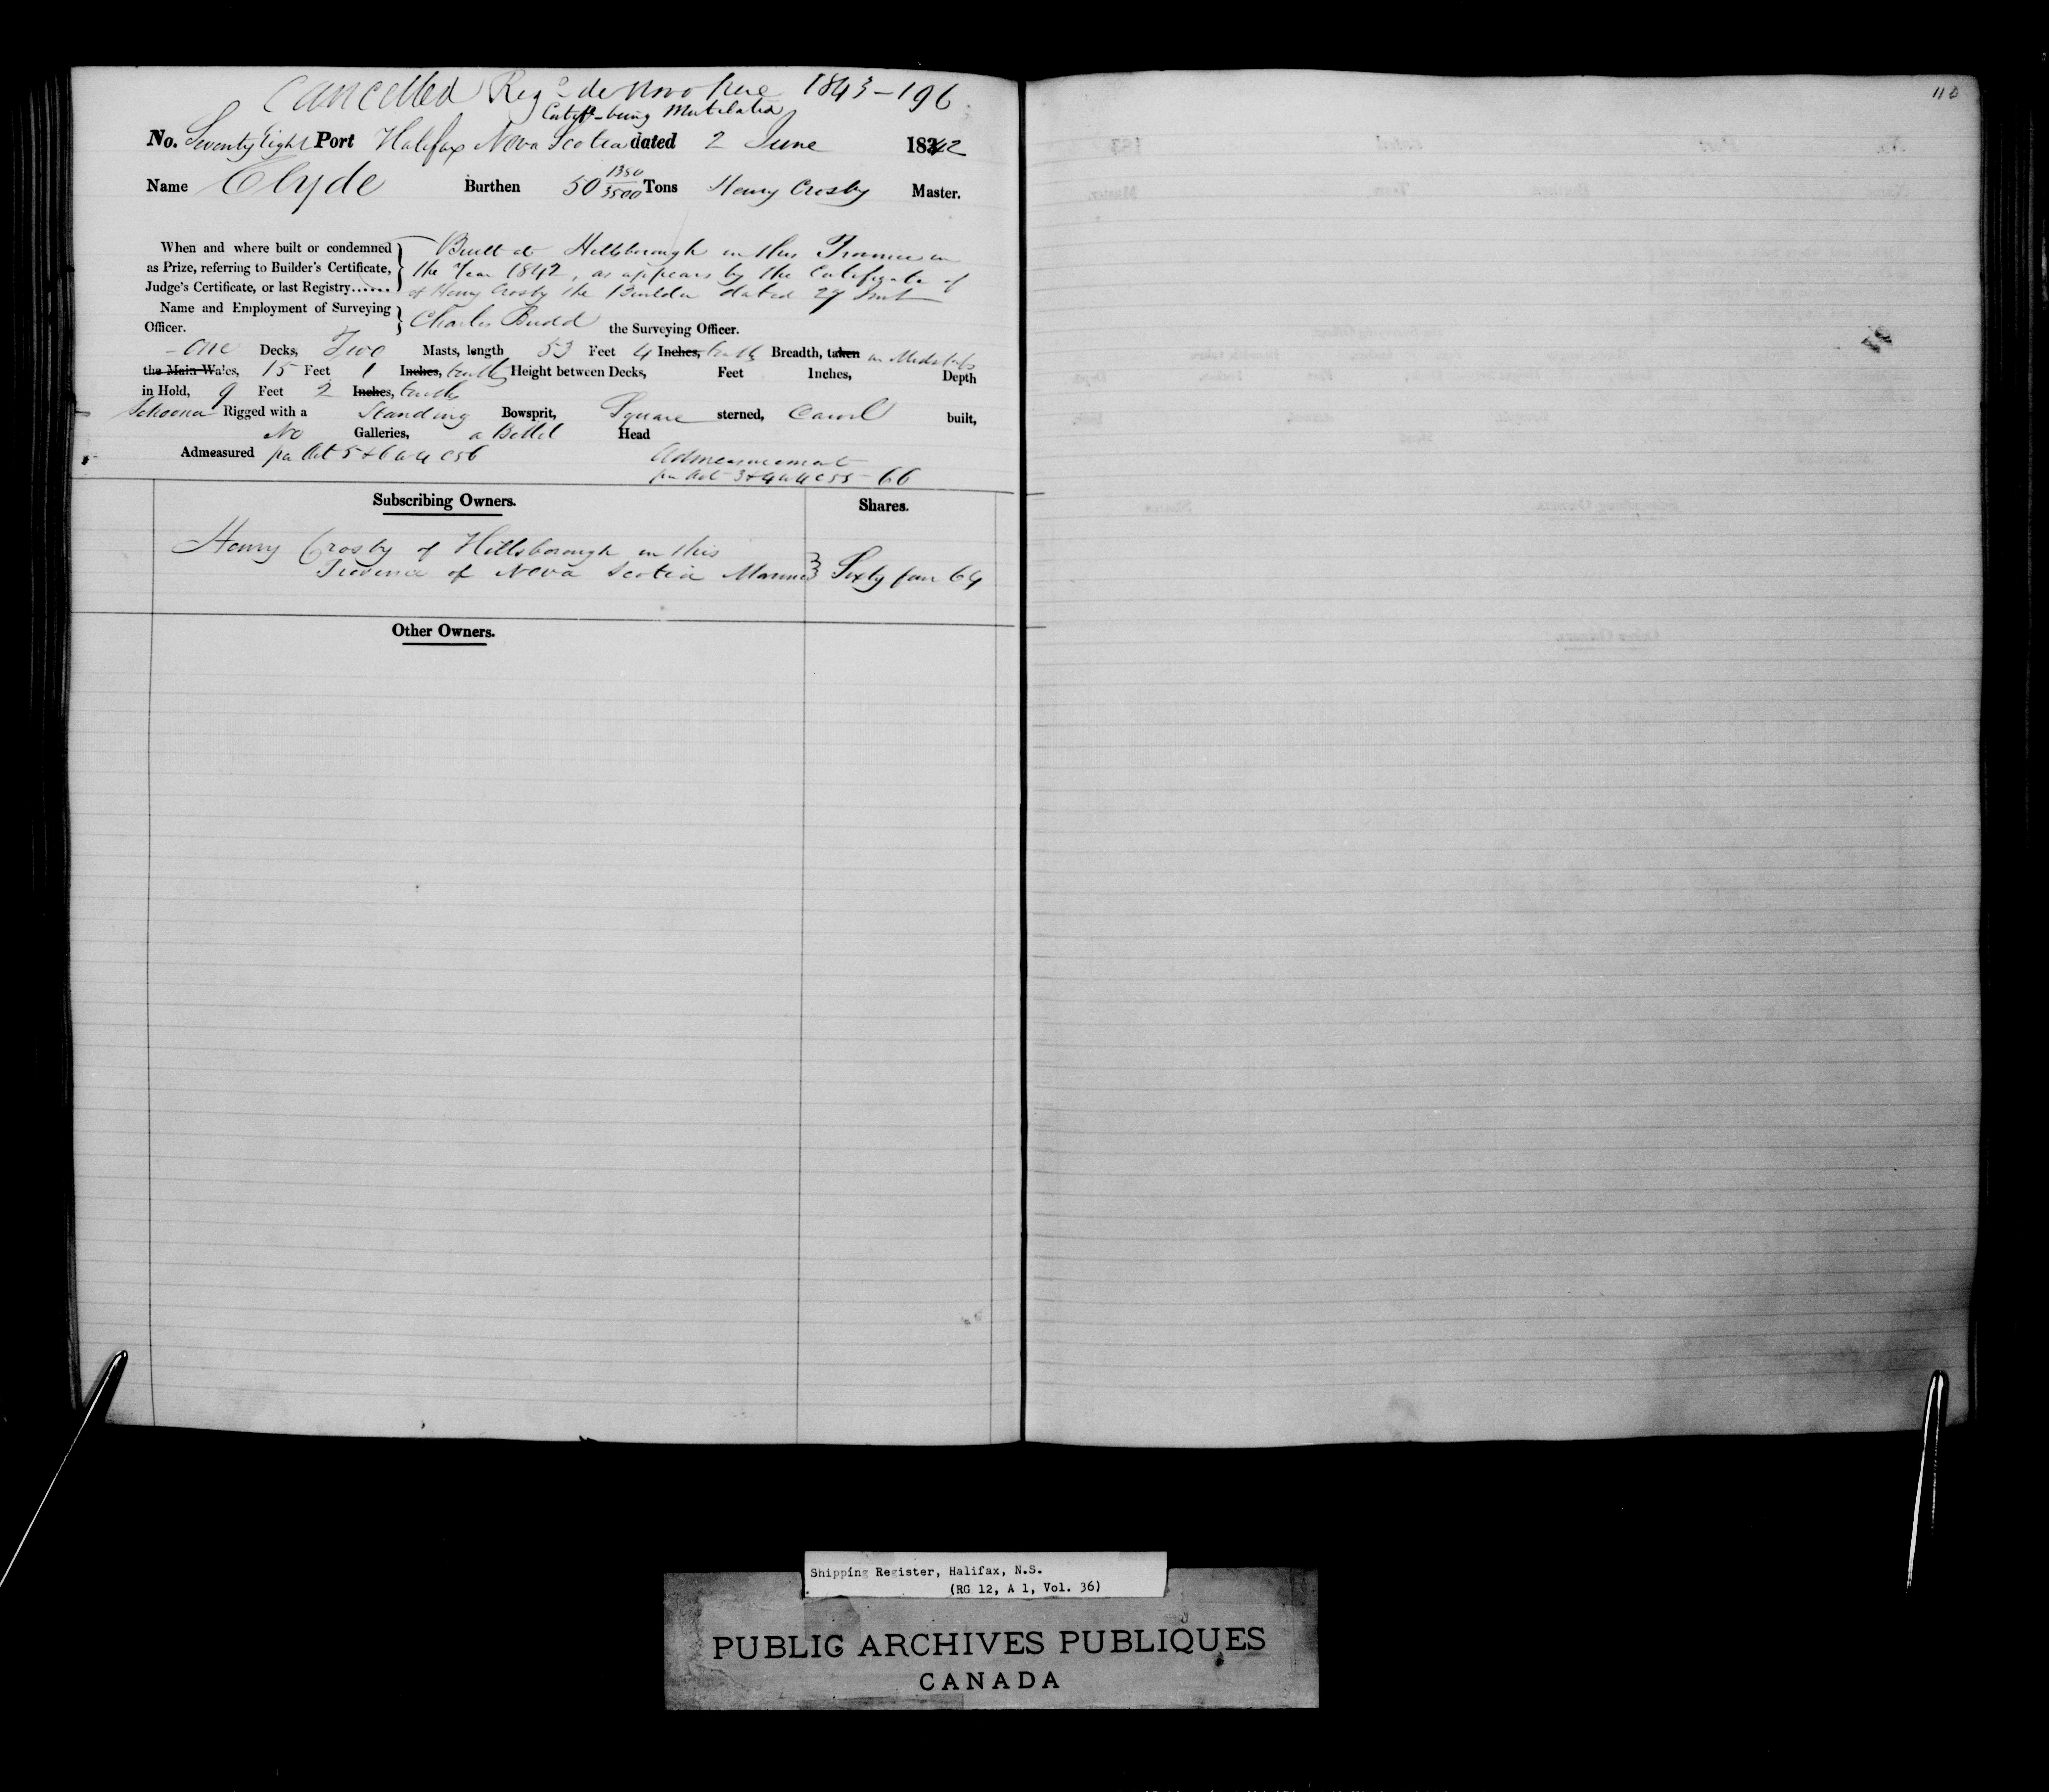 Cancelled Reg.d de novo here 1843-196
Certift being Mutilated
No. Seventy Eight Port Halifax Nova Scotia dated 2 June 18342
Name Clyde Burthen 50 1350/3500 Tons Henry Crosby Master.
When and where built or condemned
as Prize, referring to Builder's Certificate,
Judge's Certificate, or last Registry......
Built at Hillsborough in this Province in
the Year 1842, as appears by the Certificate of
of Henry Crosby the Builder dated 27
Name and Employment of Surveying
Officer. Charles Budd the Surveying Officer.
- One Decks, Two Masts, length 53 Feet 4 Inches, tenths Breadth, taken in Midships
the Main Wales, 15 Feet 1 Inches, tenths Height between Decks, Feet Inches, Depth
in Hold, 9 Feet 2 Inches, tenths
Schooner Rigged with a Standing Bowsprit, Square sterned, Carvel built,
No Galleries, a Billet Head
Admeasured pr Act 5 & 6 W 4 C 56
Admeasurement
pr Act 3 & 4 W 4 C 55 - 66
Subscribing Owners. Shares.
Henry Crosby of Hillsborough in this
Province of Nova Scotia Mariner Sixty four 64
Other Owners.
110
Shipping Register, Halifax, N.S.
(RG 12, A 1, Vol. 36)
PUBLIC ARCHIVES PUBLIQUES
CANADA